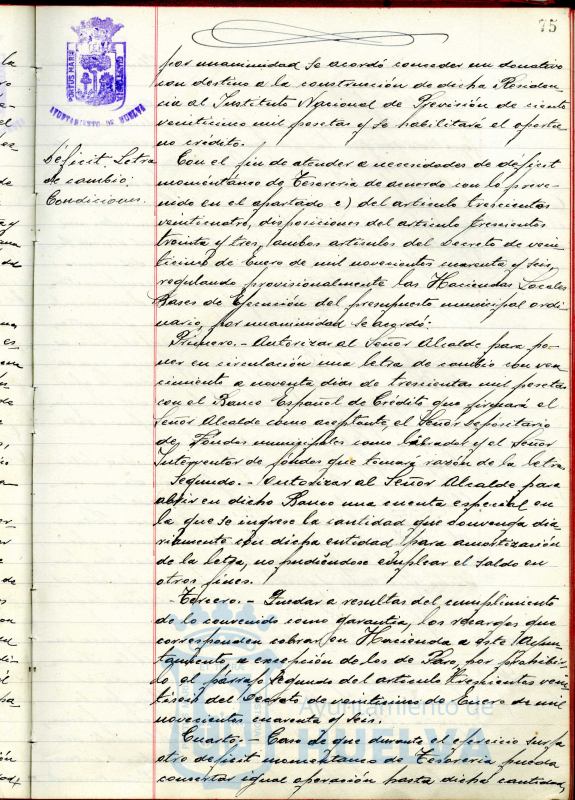 75
PORTUS MARIS
AYUNTAMIENTO DE HUELVA
por unanimidad se acordó conceder un donativo
con destino a la construcción de dicha Residen-
cia al Instituto Nacional de Previsión de ciento
veinticinco mil pesetas y se habilitará el oportu-
no crédito.
Déficit. Letra
de cambio.
Condiciones.
Con el fin de atender a necesidades de déficit
momentáneo de Tesorería de acuerdo con lo preve-
nido en el apartado c) del artículo trescientos
veinticuatro, disposiciones del artículo trescientos
treinta y tres, ambos artículos del Decreto de vein-
ticinco de Enero de mil novecientos cuarenta y seis,
regulando provisionalmente las Haciendas Locales
Bases de Ejecución del presupuesto municipal ordi-
nario, por unanimidad se acordó:
Primero.- Autorizar al Señor Alcalde para po-
ner en circulación una letra de cambio con ven-
cimiento a noventa días de trescientas mil pesetas
con el Banco Español de Crédito que firmará el
Señor Alcalde como aceptante, el Señor Depositario
de Fondos municipales como librador y el Señor
Interventor de fondos que tomará razón de la letra.
Segundo.- Autorizar al Señor Alcalde para
abrir en dicho Banco una cuenta especial en
la que se ingrese la cantidad que convenga dia-
riamente con dicha entidad para amortización
de la letra, no pudiéndose emplear el saldo en
otros fines.
Tercero.- Quedar a resultas del cumplimiento
de lo convenido como garantía, los recargos que
corresponden cobrar en Hacienda a este Ayun-
tamiento, a excepción de los de Paro, por prohibir-
lo el párrafo segundo del artículo trescientos vein-
tiseis del Decreto de veinticinco de Enero de mil
novecientos cuarenta y seis.
Cuarto.- Caso de que durante el ejercicio surja
otro déficit momentáneo de Tesorería pueda
concertar igual operación hasta dicha cantidad,
Ayuntamiento de
HUELVA